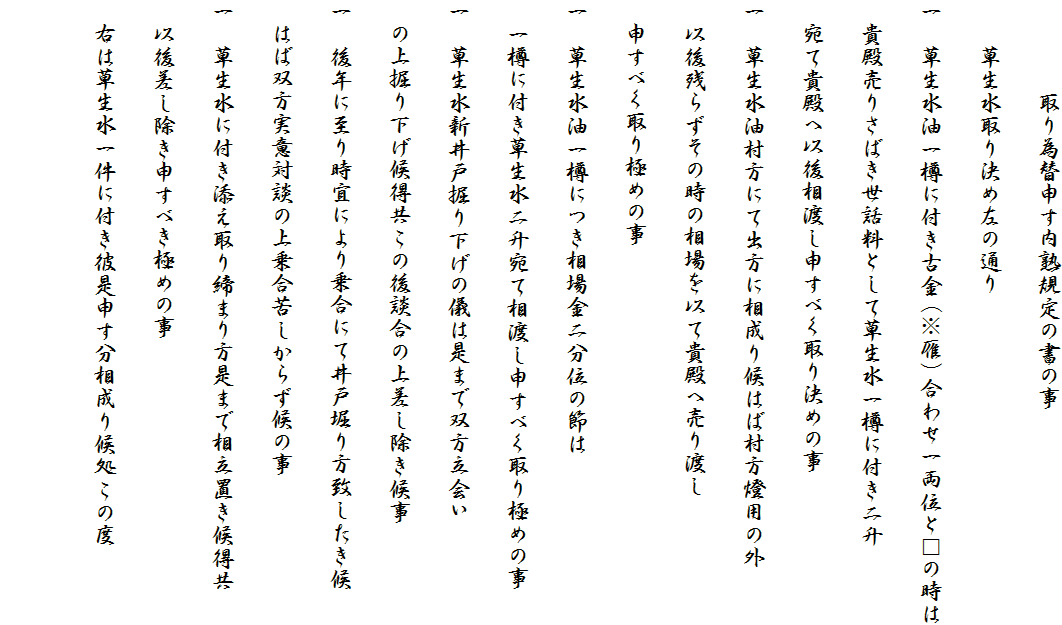 取り為替申す内熟規定の書の事
草生水取り決め左の通り
一　草生水油一樽に付き古金（※雁）合わせ一両位と□の時は
貴殿売りさばき世話料として草生水一樽に付き二升
宛て貴殿へ以後相渡し申すべく取り決めの事
一　草生水油村方にて出方に相成り候はば村方燈用の外
以後残らずその時の相場を以て貴殿へ売り渡し
申すべく取り極めの事
一　草生水油一樽につき相場金二分位の節は
一樽に付き草生水二升宛て相渡し申すべく取り極めの事
一　草生水新井戸掘り下げの儀は是まで双方立会い
の上掘り下げ候得共この後談合の上差し除き候事
一　後年に至り時宜により乗合にて井戸堀り方致したき候
はば双方実意対談の上乗合苦しからず候の事
一　草生水に付き添え取り締まり方是まで相立置き候得共
以後差し除き申すべき極めの事
右は草生水一件に付き彼是申す分相成り候処この度